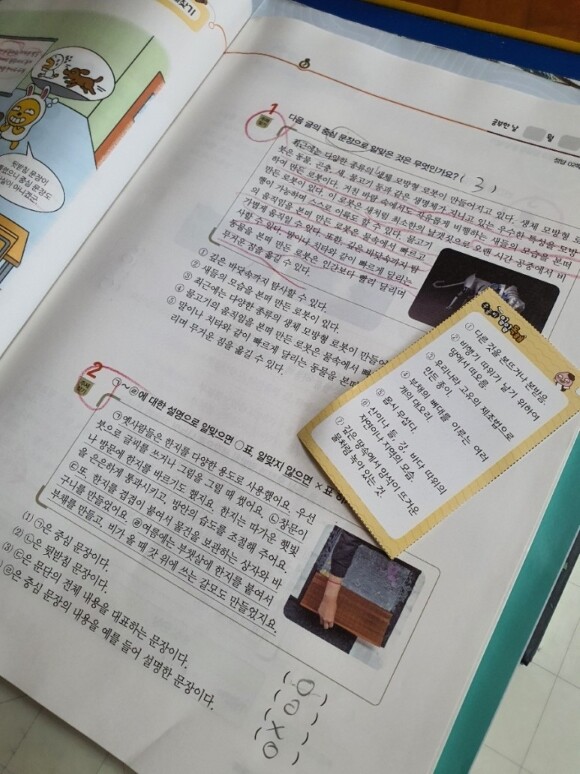 뒷받침 문장이
공부한 날
월
1
다음 글의 중심 문장으로 알맞은 것은 무엇인가요? ( 3 )
최근에는 다양한 종류의 생체 모방형 로봇이 만들어지고 있다. 생체 모방형 로
봇은 동물, 곤충, 새, 물고기 등과 같은 생명체가 지니고 있는 우수한 특성을 모방
하여 만든 로봇이다. 거친 바람 속에서도 자유롭게 비행하는 새들의 모습을 본떠
만든 로봇이 있다. 이 로봇은 새처럼 최소한의 날갯짓으로 오랜 시간 공중에서 비
행이 가능하며 스스로 이륙도 할 수 있다. 물고기
의 움직임을 본떠 만든 로봇은 물속에서 빠르고
가볍게 움직일 수 있다. 또한, 깊은 바닷속까지 탐
사할 수 있다. 말이나 치타와 같이 빠르게 달리는
동물을 본떠 만든 로봇은 인간보다 빨리 달리며
무거운 짐을 옮길 수 있다.
① 깊은 바닷속까지 탐사할 수 있다.
② 새들의 모습을 본떠 만든 로봇이 있다.
③ 최근에는 다양한 종류의 생체 모방형 로봇이 만들어
④ 물고기의 움직임을 본떠 만든 로봇은 물속에서 빠
⑤ 말이나 치타와 같이 빠르게 달리는 동물을 본떠
리며 무거운 짐을 옮길 수 있다.
① 다른 것을 본뜨거나 본받음.
② 비행기 따위가 날기 위하여
땅에서 떠오름.
③ 우리나라 고유의 제조법으로
만든 종이
④ 부채의 뼈대를 이루는 여러
개의 대오리
⑤ 몹시 무섭다.
⑥ 산이나 들, 강, 바다 따위의
자연이나 지역의 모습
⑦ 깊은 땅속에서 암석이 뜨거운
물처럼 녹아 있는 것
2
㉠~㉣에 대한 설명으로 알맞으면 ○표, 알맞지 않으면 ×표
㉠옛사람들은 한지를 다양한 용도로 사용했어요. 우선
붓으로 글씨를 쓰거나 그림을 그릴 때 썼어요. ㉡창문이
나 방문에 한지를 바르기도 했지요. 한지는 따가운 햇빛
을 은은하게 통과시키고, 방안의 습도를 조절해 주어요.
㉢또 한지를 겹겹이 붙여서 물건을 보관하는 상자와 바
구니를 만들었어요. ㉣여름에는 부챗살에 한지를 붙여서
부채를 만들고, 비가 올 때 갓 위에 쓰는 갈모도 만들었지요.
(1) ㉠은 중심 문장이다.
(2) ㉡은 뒷받침 문장이다.
(3) ㉢은 문단의 전체 내용을 대표하는 문장이다.
) ㉣은 중심 문장의 내용을 예를 들어 설명한 문장이다.
( O )
( O )
( X )
( O )